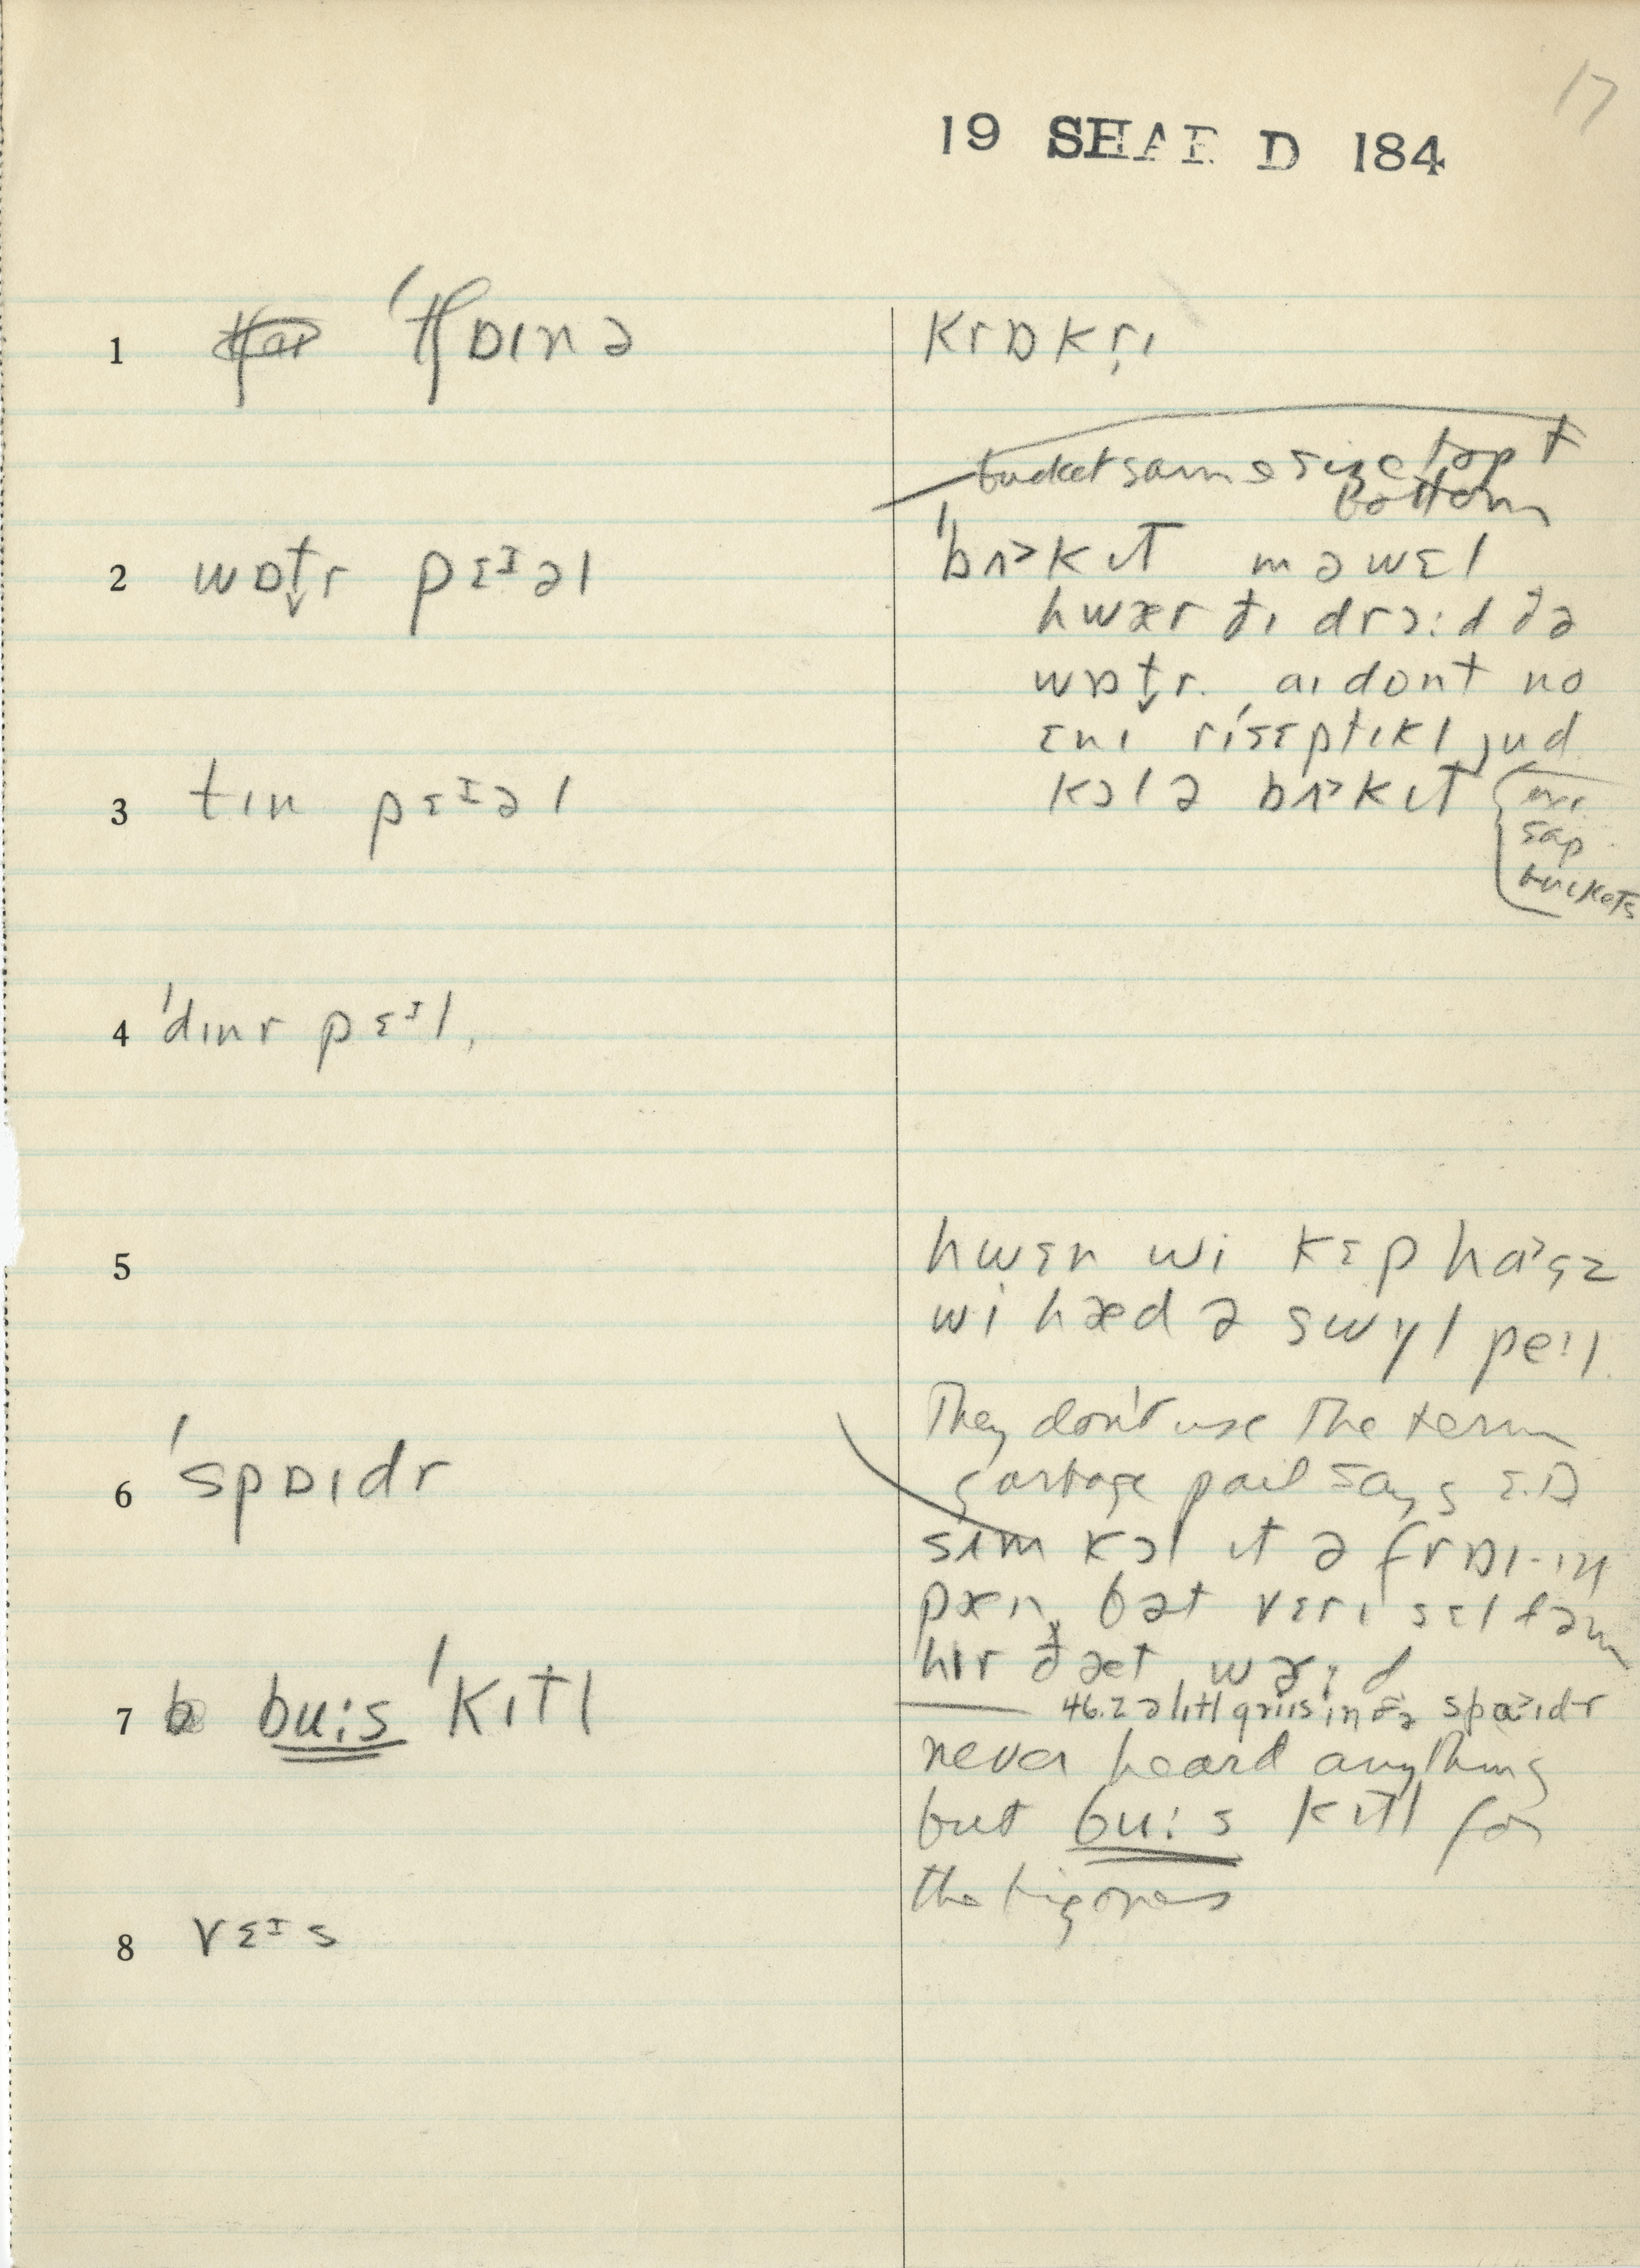 17
19 SHAR D 184
1 ˈtʃɒɪnə
krɒkrɪ
bucket same size top +
bottom
2 wɒt̬r pɛᴵəl
ˈbʌ˃kɪt mə wɛl
hwær ðɪ drɔːd ðə
wɒt̬r. aɪ dont no
ɛnɪ rɪˈsɛptɪkl jud
3 tɪn pɛᴵəl
kɔl ə bʌ˃kɪt
sap
buckets
4 ˈdɪnr pɛᴵl,
5
hwɛn wi kɛp ha˃gz
wi hæd ə swɪl peɪl.
They don't use the term
garbage pail says E.D
6 ˈspɒɪdr
sʌm kɔl ɪt ə frɒɪ-ɪŋ
pæn, bət vɛrɪ sɛldəm
hɪr ðæt wɝd
7 buːs ˈkɪtl
46.2 ə lɪtl griis in ðə spa˃ɪdr
never heard anything
but buːs kɪtl for
the big ones
8 vɛᴵs